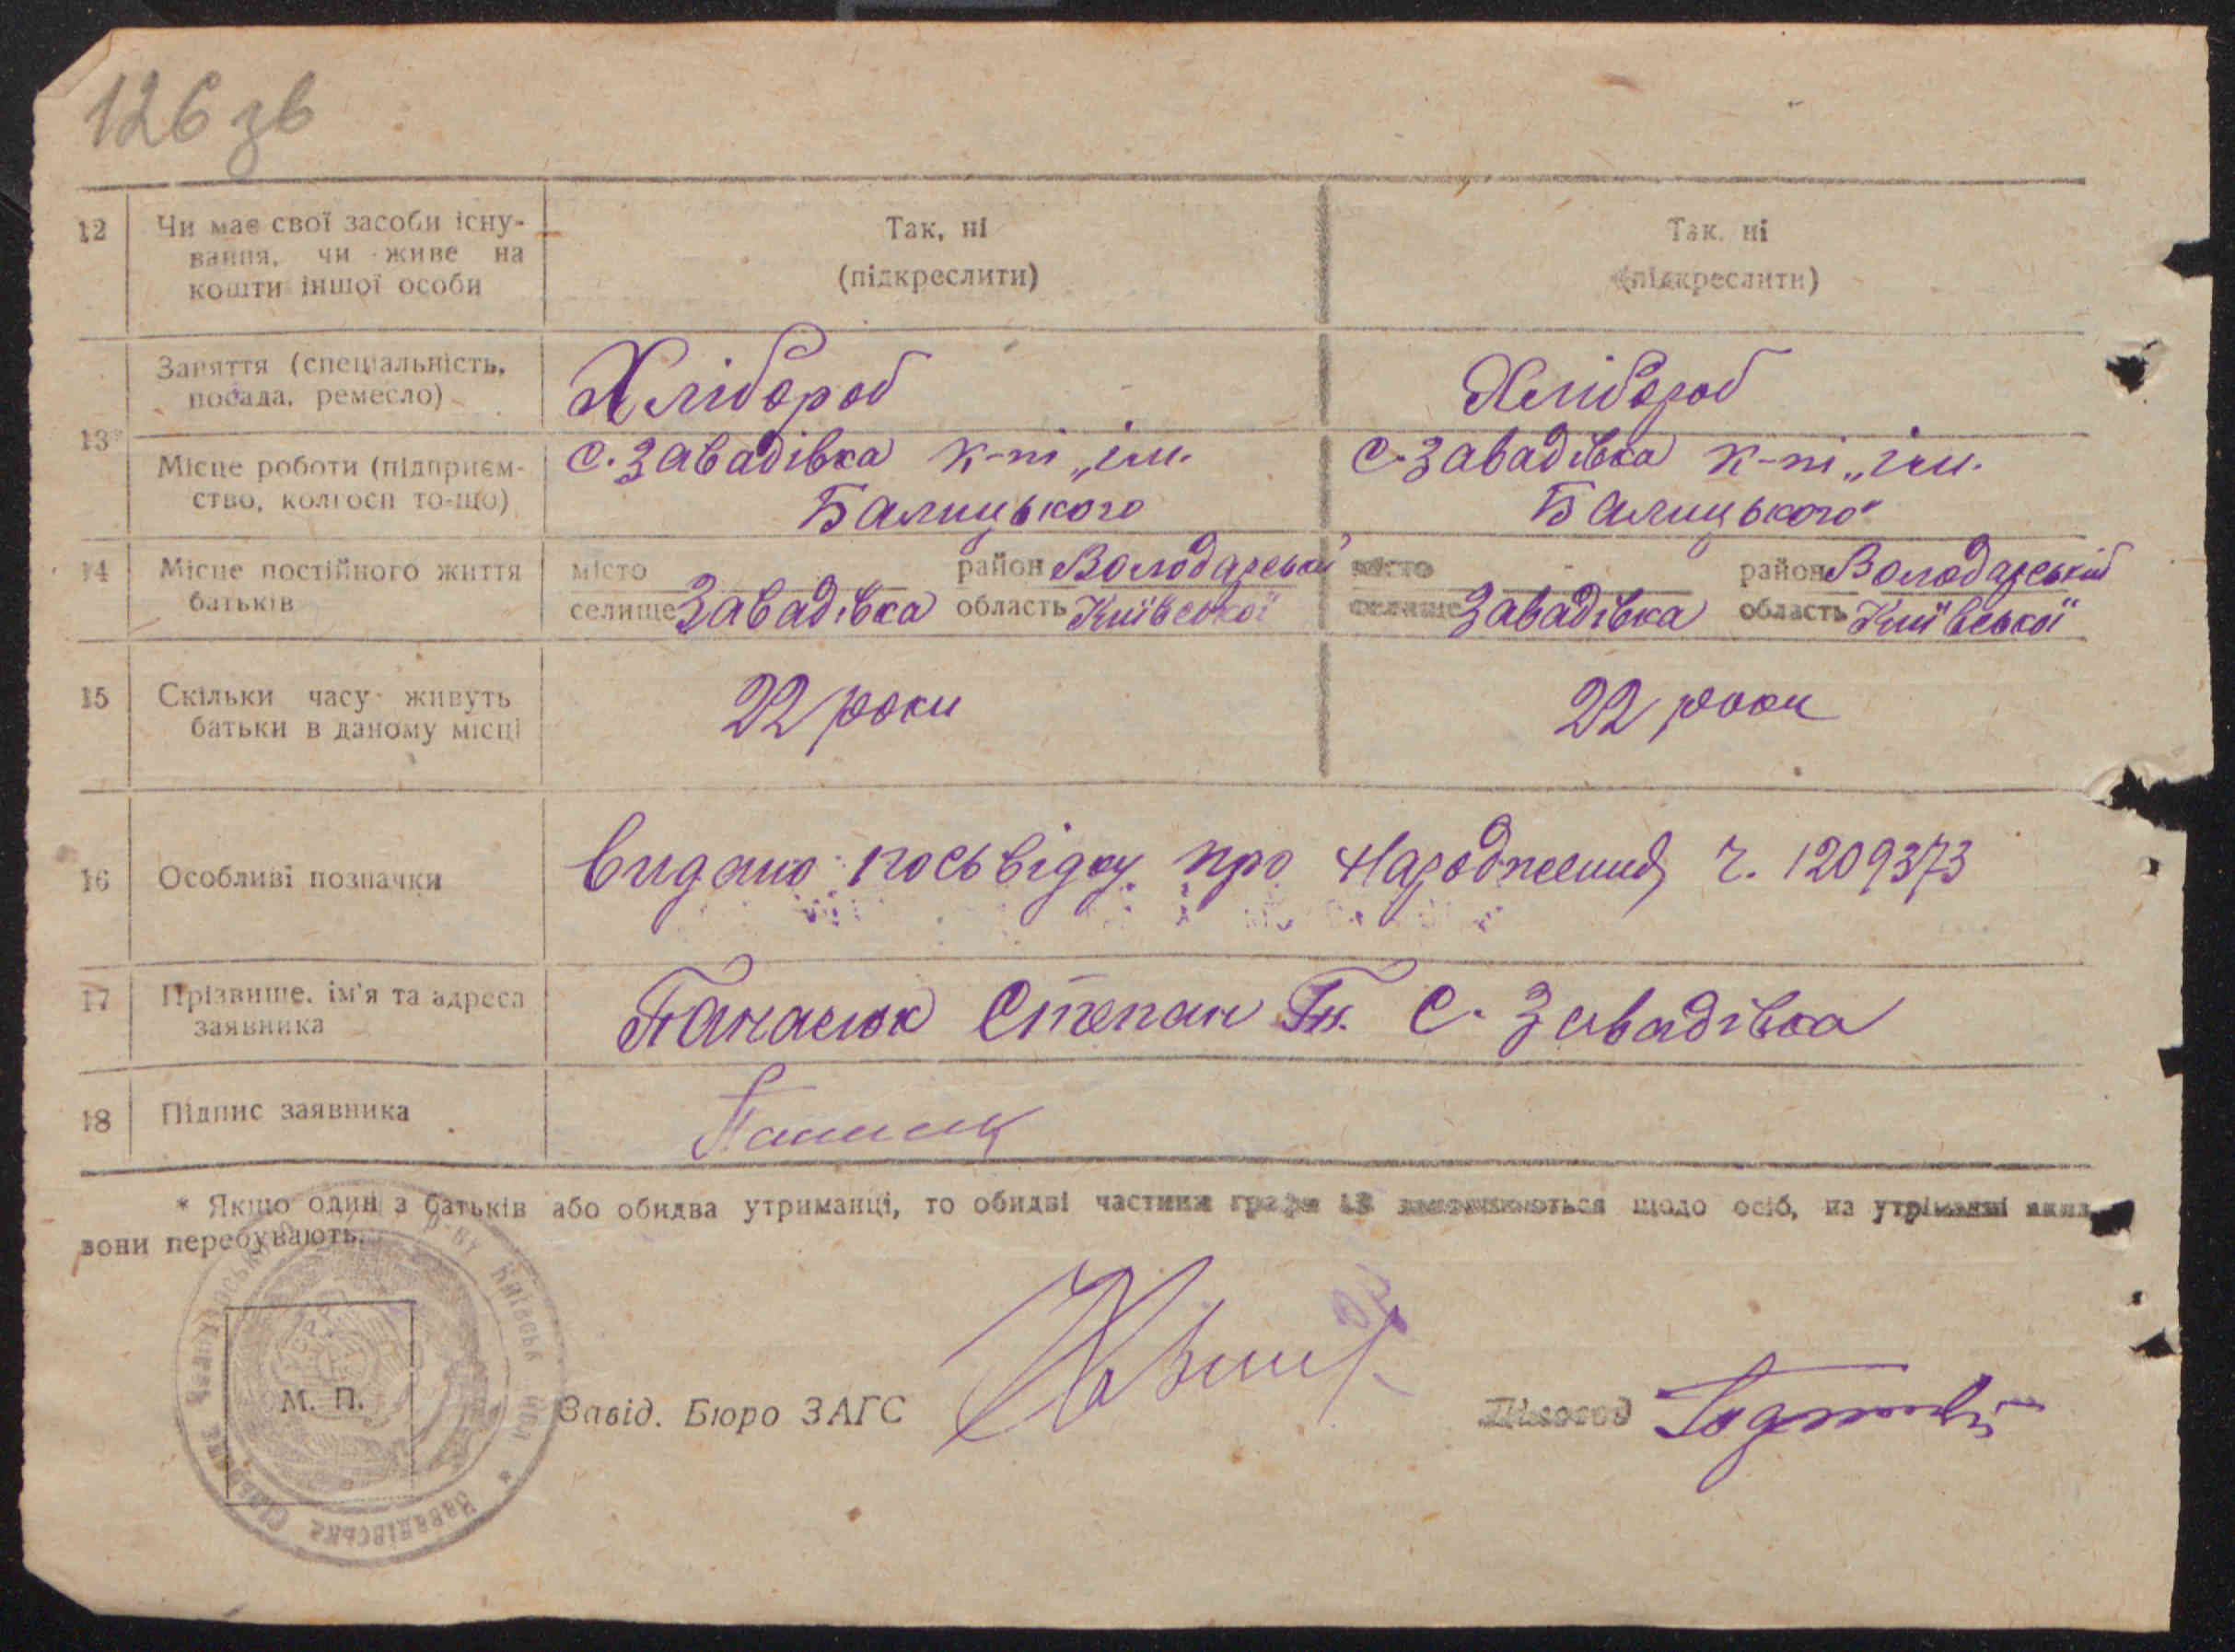 126 зв
12 Чи має свої засоби існу-
вання, чи живе на
кошти іншої особи
Так, ні
(підкреслити)
Так, ні
(підкреслити)
13
Заняття (спеціальність,
посада, ремесло)
Хлібороб
Хлібороб
Місце роботи (підприєм-
ство, колгосп то-що)
с. Завадівка к-пі „ім.
Балицького
с. Завадівка к-пі „ім.
Балицького"
14 Місце постійного життя
батьків
місто район Володарський
селище Завадівка область Київської
місто район Володарський
селище Завадівка область Київської
15 Скільки часу живуть
батьки в даному місці
22 роки
22 роки
16 Особливі позначки
Видано посьвідку про народження ч. 1209373
17 Прізвище, ім'я та адреса
заявника
Панасюк Степан Гн. с. Завадівка
18 Підпис заявника
* Якщо один з батьків або обидва утриманці, то обидві частини графи заповнюються щодо осіб, на утриманні яких
вони перебувають.
М. П.
Завід. Бюро ЗАГС
Діловод
Завадівська